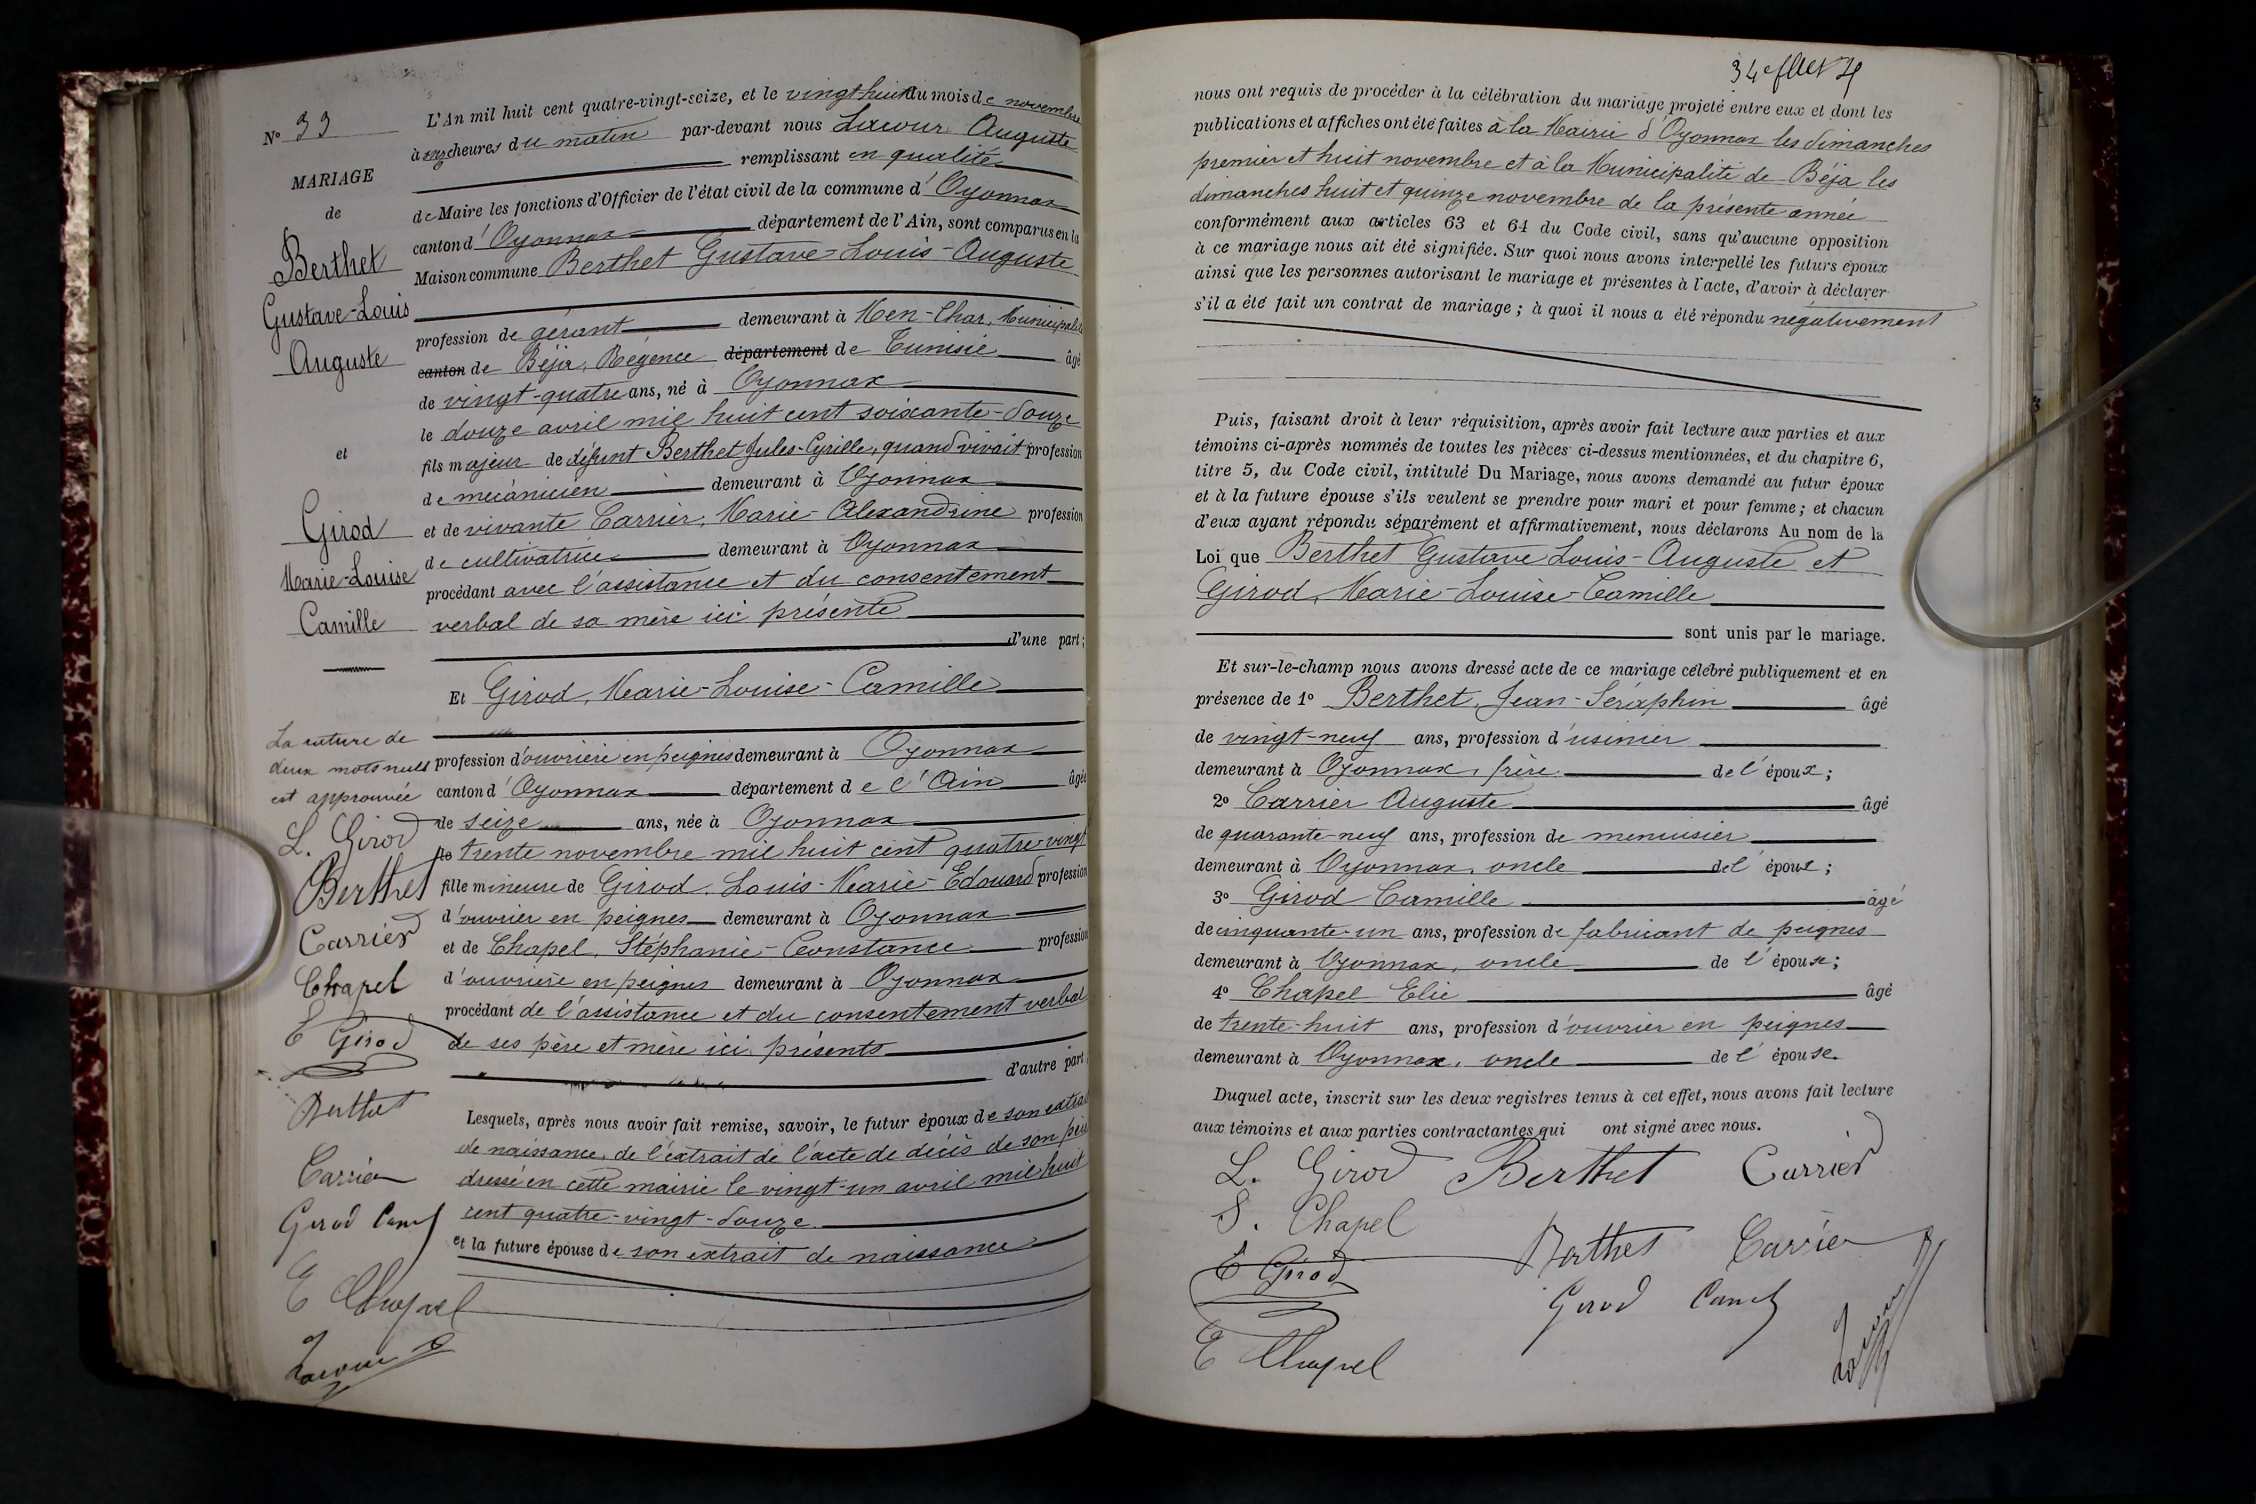 N° 33
MARIAGE
de
Berthet
Gustave-Louis
Auguste
et
Girod
Marie-Louise
Camille
La rature de
deux mots nuls
est approuvée
L. Girod
Berthet
Carrier
Chapel
E Girod
Berthet
Carrier
Girod Cam
E Chapel
Lacour
L'An mil huit cent quatre-vingt-seize, et le vingt huit du mois de novembre
à onze heures du matin par-devant nous Lacour Auguste
remplissant en qualité
de Maire les fonctions d'Officier de l'état civil de la commune d'Oyonnax
canton d'Oyonnax département de l'Ain, sont comparus en la
Maison commune Berthet Gustave-Louis-Auguste
profession de gérant demeurant à Men-Char, Municipalité
canton de Béja, Régence département de Tunisie âgé
de vingt-quatre ans, né à Oyonnax
le douze avril mil huit cent soixante-douze
fils majeur de défunt Berthet Jules-Cyrille, quand vivait profession
de mécanicien demeurant à Oyonnax
et de vivante Carrier, Marie-Alexandrine profession
de cultivatrice demeurant à Oyonnax
procédant avec l'assistance et du consentement
verbal de sa mère ici présente
d'une part;
Et Girod, Marie-Louise-Camille
profession d'ouvrière en peignes demeurant à Oyonnax
canton d'Oyonnax département de l'Ain âgée
de seize ans, née à Oyonnax
le trente novembre mil huit cent quatre-vingt
fille mineure de Girod, Louis-Marie-Edouard profession
d'ouvrier en peignes demeurant à Oyonnax
et de Chapel, Stéphanie-Constance profession
d'ouvrière en peignes demeurant à Oyonnax
procédant de l'assistance et du consentement verbal
de ses père et mère ici présents
d'autre part.
Lesquels, après nous avoir fait remise, savoir, le futur époux de son extrait
de naissance, de l'extrait de l'acte de décès de son père
dressé en cette mairie le vingt-un avril mil huit
cent quatre-vingt-douze
et la future épouse de son extrait de naissance
34e
nous ont requis de procéder à la célébration du mariage projeté entre eux et dont les
publications et affiches ont été faites à la Mairie d'Oyonnax les dimanches
premier et huit novembre et à la Municipalité de Béja les
dimanches huit et quinze novembre de la présente année
conformément aux articles 63 et 64 du Code civil, sans qu'aucune opposition
à ce mariage nous ait été signifiée. Sur quoi nous avons interpellé les futurs époux
ainsi que les personnes autorisant le mariage et présentes à l'acte, d'avoir à déclarer
s'il a été fait un contrat de mariage; à quoi il nous a été répondu négativement
Puis, faisant droit à leur réquisition, après avoir fait lecture aux parties et aux
témoins ci-après nommés de toutes les pièces ci-dessus mentionnées, et du chapitre 6,
titre 5, du Code civil, intitulé Du Mariage, nous avons demandé au futur époux
et à la future épouse s'ils veulent se prendre pour mari et pour femme; et chacun
d'eux ayant répondu séparément et affirmativement, nous déclarons Au nom de la
Loi que Berthet Gustave Louis-Auguste et
Girod, Marie-Louise-Camille
sont unis par le mariage.
Et sur-le-champ nous avons dressé acte de ce mariage célébré publiquement et en
présence de 1° Berthet, Jean-Séraphin âgé
de vingt-neuf ans, profession d'usinier
demeurant à Oyonnax, frère de l'époux;
2° Carrier Auguste âgé
de quarante-neuf ans, profession de menuisier
demeurant à Oyonnax, oncle de l'époux;
3° Girod Camille âgé
de cinquante-un ans, profession de fabricant de peignes
demeurant à Oyonnax, oncle de l'épouse;
4° Chapel Elie âgé
de trente-huit ans, profession d'ouvrier en peignes
demeurant à Oyonnax, oncle de l'épouse.
Duquel acte, inscrit sur les deux registres tenus à cet effet, nous avons fait lecture
aux témoins et aux parties contractantes qui ont signé avec nous.
L. Girod Berthet Carrier
S. Chapel
Berthet Carrier
E Girod
Girod Cam
E Chapel
Lacour